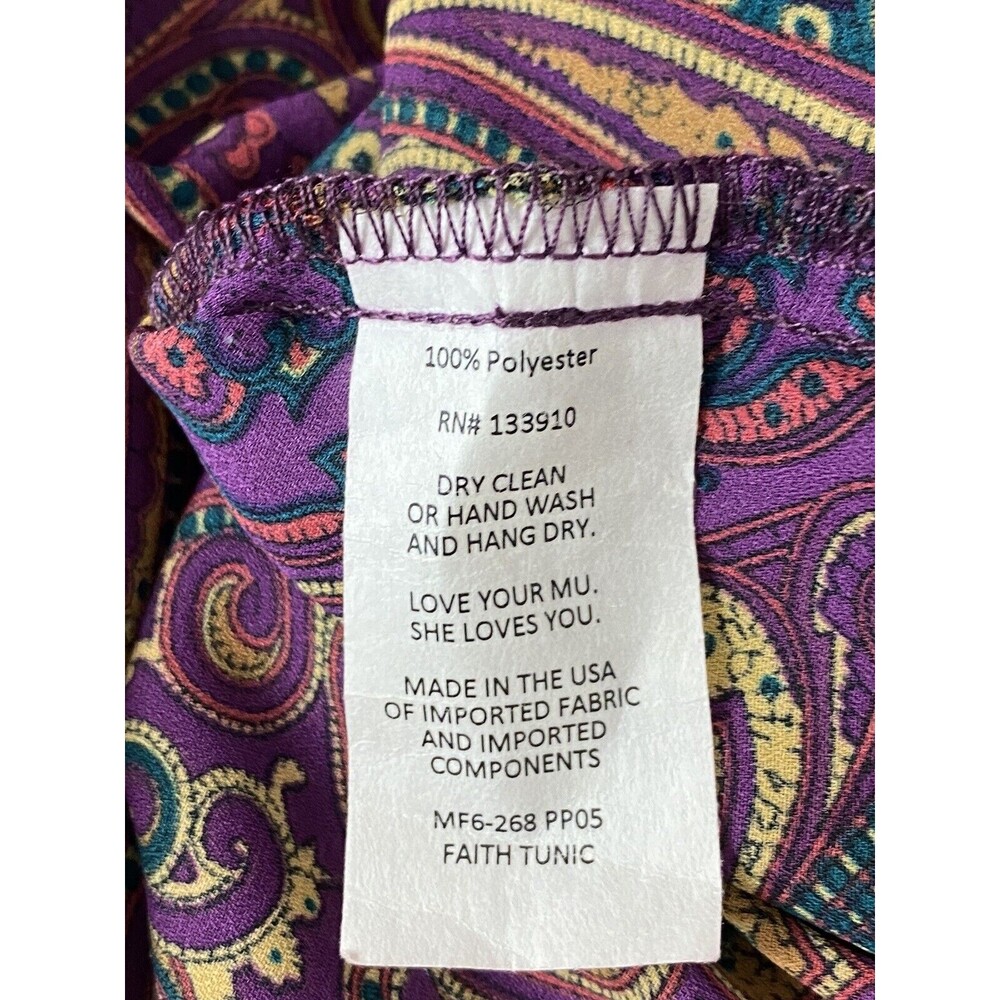 100% Polyester
RN# 133910
DRY CLEAN
OR HAND WASH
AND HANG DRY.
LOVE YOUR MU.
SHE LOVES YOU.
MADE IN THE USA
OF IMPORTED FABRIC
AND IMPORTED
COMPONENTS
MF6-268 PP05
FAITH TUNIC